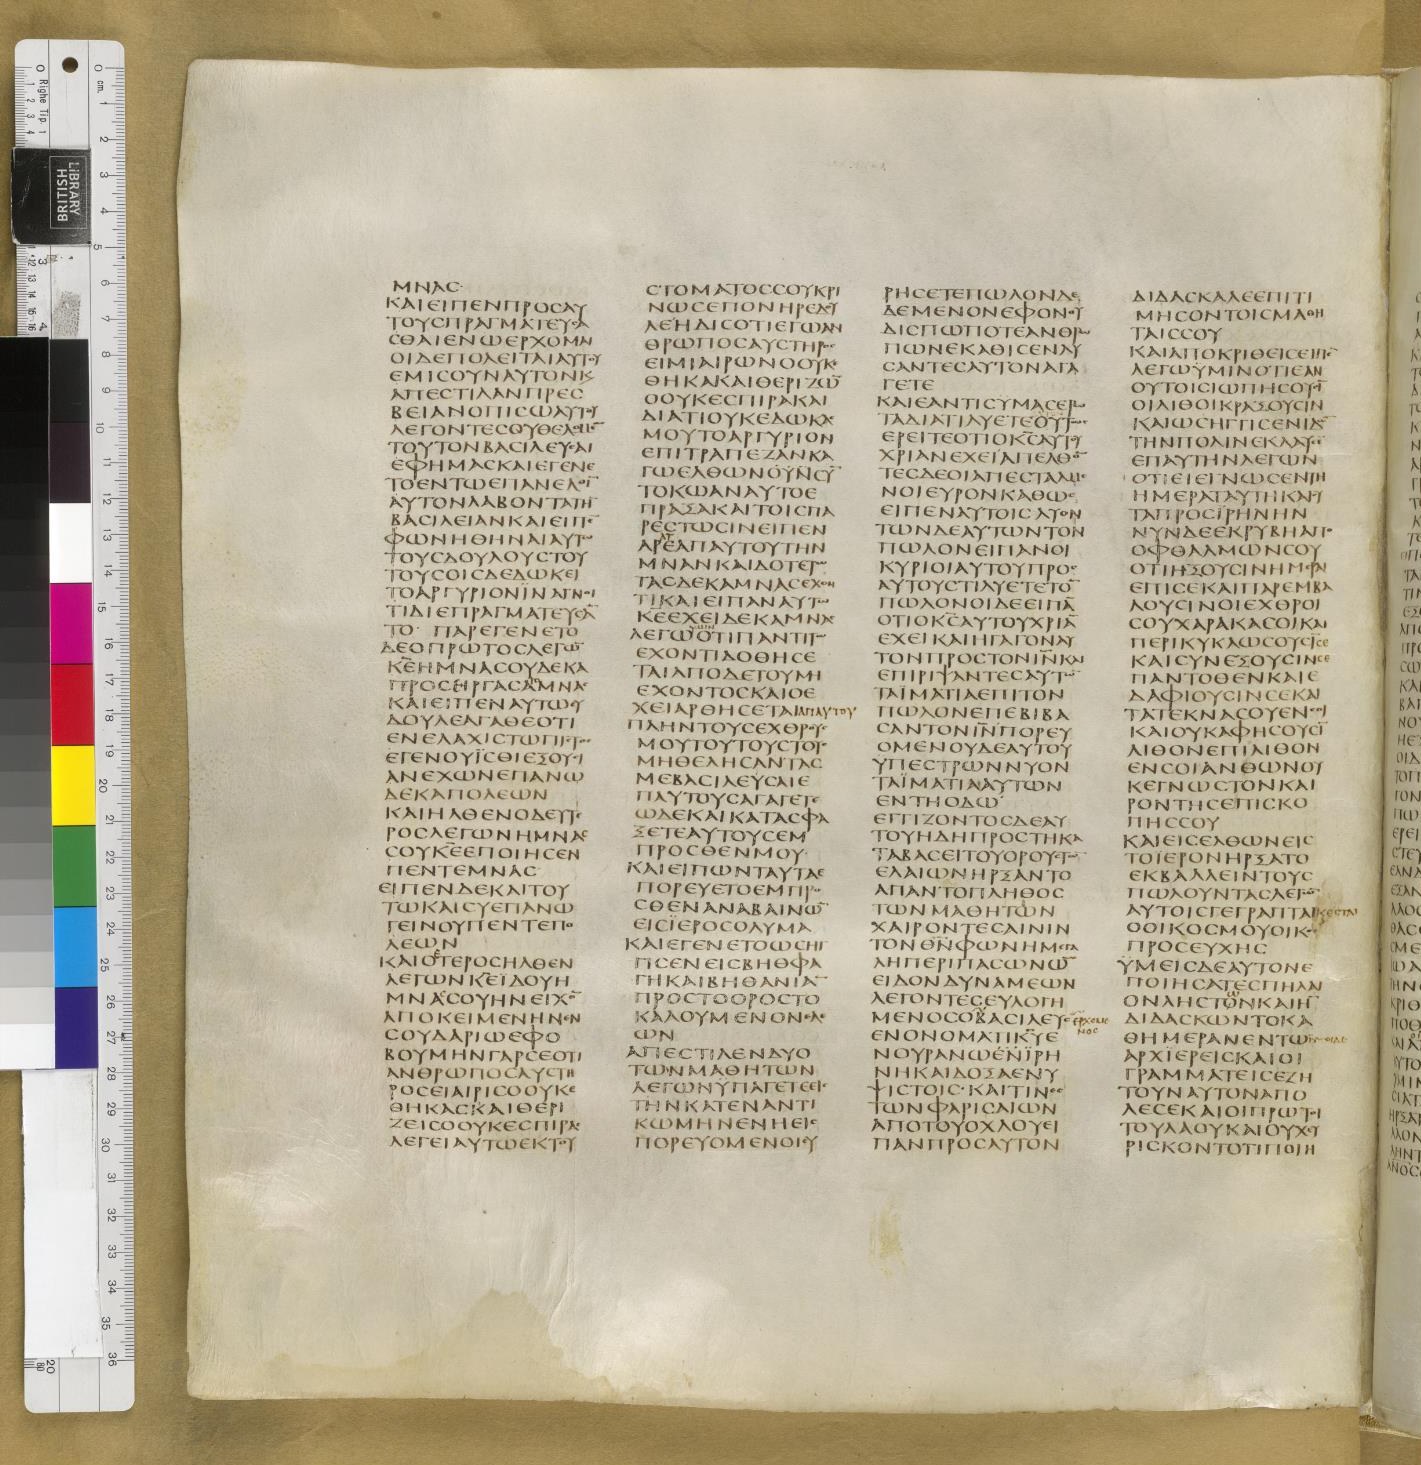 LIBRARY
BRITISH
ΜΝΑϹ·
ΚΑΙΕΙΠΕΝΠΡΟϹΑΥ
ΤΟΥϹΠΡΑΓΜΑΤΕΥϹΑ
ϹΘΑΙΕΝΩΕΡΧΟΜΑΙ
ΟΙΔΕΠΟΛΕΙΤΑΙΑΥΤΟΥ
ΕΜΙϹΟΥΝΑΥΤΟΝΚΑΙ
ΑΠΕϹΤΙΛΑΝΠΡΕϹ
ΒΕΙΑΝΟΠΙϹΩΑΥΤΟΥ
ΛΕΓΟΝΤΕϹΟΥΘΕΛΟΜΕ̅
ΤΟΥΤΟΝΒΑϹΙΛΕΥϹΑΙ
ΕΦΗΜΑϹΚΑΙΕΓΕΝΕ
ΤΟΕΝΤΩΕΠΑΝΕΛΘΙ̅
ΑΥΤΟΝΛΑΒΟΝΤΑΤΗ̅
ΒΑϹΙΛΕΙΑΝΚΑΙΕΙΠΕ̅
ΦΩΝΗΘΗΝΑΙΑΥΤΩ
ΤΟΥϹΔΟΥΛΟΥϹΤΟΥ
ΤΟΥϹΟΙϹΔΕΔΩΚΕΙ
ΤΟΑΡΓΥΡΙΟΝΪΝΑΓΝΟΙ
ΤΙΔΙΕΠΡΑΓΜΑΤΕΥϹΑ̅
ΤΟ· ΠΑΡΕΓΕΝΕΤΟ
ΔΕΟΠΡΩΤΟϹΛΕΓΩ̅
Κ̅Ε̅ΗΜΝΑϹΟΥΔΕΚΑ
ΠΡΟϹΗΡΓΑϹΑΤΟΜΝΑϹ
ΚΑΙΕΙΠΕΝΑΥΤΩΕΥ
ΔΟΥΛΕΑΓΑΘΕΟΤΙ
ΕΝΕΛΑΧΙϹΤΩΠΙϹΤΟϹ
ΕΓΕΝΟΥΪϹΘΙΕΞΟΥϹΙ
ΑΝΕΧΩΝΕΠΑΝΩ
ΔΕΚΑΠΟΛΕΩΝ
ΚΑΙΗΛΘΕΝΟΔΕΥΤΕ
ΡΟϹΛΕΓΩΝΗΜΝΑ
ϹΟΥΚ̅Ε̅ΕΠΟΙΗϹΕΝ
ΠΕΝΤΕΜΝΑϹ
ΕΙΠΕΝΔΕΚΑΙΤΟΥ
ΤΩΚΑΙϹΥΕΠΑΝΩ
ΓΕΙΝΟΥΠΕΝΤΕΠΟ
ΛΕΩΝ
ΚΑΙΟΕΤΕΡΟϹΗΛΘΕΝ
ΛΕΓΩΝΚ̅Ε̅ΪΔΟΥΗ
ΜΝΑϹΟΥΗΝΕΙΧΟ̅
ΑΠΟΚΕΙΜΕΝΗΝΕΝ
ϹΟΥΔΑΡΙΩΕΦΟ
ΒΟΥΜΗΝΓΑΡϹΕΟΤΙ
ΑΝΘΡΩΠΟϹΑΥϹΤΗ
ΡΟϹΕΙΑΙΡΙϹΟΟΥΚΕ
ΘΗΚΑϹΚΑΙΘΕΡΙ
ΖΕΙϹΟΟΥΚΕϹΠΙΡΑϹ
ΛΕΓΕΙΑΥΤΩΕΚΤΟΥ
ϹΤΟΜΑΤΟϹϹΟΥΚΡΙ
ΝΩϹΕΠΟΝΗΡΕΔΟΥ
ΛΕΗΔΙϹΟΤΙΕΓΩΑΝ
ΘΡΩΠΟϹΑΥϹΤΗΡΟϹ
ΕΙΜΙΑΙΡΩΝΟΟΥΚΕ
ΘΗΚΑΚΑΙΘΕΡΙΖΩ̅
ΟΟΥΚΕϹΠΙΡΑΚΑΙ
ΔΙΑΤΙΟΥΚΕΔΩΚΑϹ
ΜΟΥΤΟΑΡΓΥΡΙΟΝ
ΕΠΙΤΡΑΠΕΖΑΝΚΑ
ΓΩΕΛΘΩΝΟΥΝϹΥ̅
ΤΟΚΩΑΝΑΥΤΟΕ
ΠΡΑΞΑΚΑΙΤΟΙϹΠΑ
ΡΕϹΤΩϹΙΝΕΙΠΕΝ
ΑΡΑΤΕΑΠΑΥΤΟΥΤΗΝ
ΜΝΑΝΚΑΙΔΟΤΕΤΩ
ΤΑϹΔΕΚΑΜΝΑϹΕΧΟΝ
ΤΙΚΑΙΕΙΠΑΝΑΥΤΩ
Κ̅Ε̅ΕΧΕΙΔΕΚΑΜΝΑϹ
ΛΕΓΩΫΜΙΝΟΤΙΠΑΝΤΙΤΩ
ΕΧΟΝΤΙΔΟΘΗϹΕ
ΤΑΙΑΠΟΔΕΤΟΥΜΗ
ΕΧΟΝΤΟϹΚΑΙΟΕ
ΧΕΙΑΡΘΗϹΕΤΑΙΑΠΑΥΤΟΥ
ΠΛΗΝΤΟΥϹΕΧΘΡΟΥϹ
ΜΟΥΤΟΥΤΟΥϹΤΟΥϹ
ΜΗΘΕΛΗϹΑΝΤΑϹ
ΜΕΒΑϹΙΛΕΥϹΑΙΕ
ΠΑΥΤΟΥϹΑΓΑΓΕΤΕ
ΩΔΕΚΑΙΚΑΤΑϹΦΑ
ΞΕΤΕΑΥΤΟΥϹΕΜ
ΠΡΟϹΘΕΝΜΟΥ·
ΚΑΙΕΙΠΩΝΤΑΥΤΑΕ
ΠΟΡΕΥΕΤΟΕΜΠΡΟ
ϹΘΕΝΑΝΑΒΑΙΝΩ̅
ΕΙϹΪΕΡΟϹΟΛΥΜΑ
ΚΑΙΕΓΕΝΕΤΟΩϹΗΓ
ΓΙϹΕΝΕΙϹΒΗΘΦΑ
ΓΗΚΑΙΒΗΘΑΝΙΑ̅
ΠΡΟϹΤΟΟΡΟϹΤΟ
ΚΑΛΟΥΜΕΝΟΝΕΛΑΙ
ΩΝ
ΑΠΕϹΤΙΛΕΝΔΥΟ
ΤΩΝΜΑΘΗΤΩΝ
ΛΕΓΩΝΫΠΑΓΕΤΕΕΙϹ
ΤΗΝΚΑΤΕΝΑΝΤΙ
ΚΩΜΗΝΕΝΗΕΙϹ
ΠΟΡΕΥΟΜΕΝΟΙΕΥ
ΡΗϹΕΤΕΠΩΛΟΝΔΕ
ΔΕΜΕΝΟΝΕΦΟΝΟΥ
ΔΙϹΠΩΠΟΤΕΑΝΘΡΩ
ΠΩΝΕΚΑΘΙϹΕΝΛΥ
ϹΑΝΤΕϹΑΥΤΟΝΑΓΑ
ΓΕΤΕ
ΚΑΙΕΑΝΤΙϹΥΜΑϹΕΡΩ
ΤΑΔΙΑΤΙΛΥΕΤΕΟΥΤΩϹ
ΕΡΕΙΤΕΟΤΙΟΚ̅Ϲ̅ΑΥΤΟΥ
ΧΡΙΑΝΕΧΕΙΑΠΕΛΘΟ̅
ΤΕϹΔΕΟΙΑΠΕϹΤΑΛΜΕ
ΝΟΙΕΥΡΟΝΚΑΘΩϹ
ΕΙΠΕΝΑΥΤΟΙϹΛΥΟΝ
ΤΩΝΔΕΑΥΤΩΝΤΟΝ
ΠΩΛΟΝΕΙΠΑΝΟΙ
ΚΥΡΙΟΙΑΥΤΟΥΠΡΟϹ
ΑΥΤΟΥϹΤΙΛΥΕΤΕΤΟ̅
ΠΩΛΟΝΟΙΔΕΕΙΠΑ̅
ΟΤΙΟΚ̅Ϲ̅ΑΥΤΟΥΧΡΙΑ̅
ΕΧΕΙΚΑΙΗΓΑΓΟΝΑΥ
ΤΟΝΠΡΟϹΤΟΝΙ̅Ν̅ΚΑΙ
ΕΠΙΡΙΨΑΝΤΕϹΑΥΤΩ̅
ΤΑΪΜΑΤΙΑΕΠΙΤΟΝ
ΠΩΛΟΝΕΠΕΒΙΒΑ
ϹΑΝΤΟΝΙ̅Ν̅ΠΟΡΕΥ
ΟΜΕΝΟΥΔΕΑΥΤΟΥ
ΫΠΕϹΤΡΩΝΝΥΟΝ
ΤΑΪΜΑΤΙΑΑΥΤΩΝ
ΕΝΤΗΟΔΩ·
ΕΓΓΙΖΟΝΤΟϹΔΕΑΥ
ΤΟΥΗΔΗΠΡΟϹΤΗΚΑ
ΤΑΒΑϹΕΙΤΟΥΟΡΟΥϹΤΩ̅
ΕΛΑΙΩΝΗΡΞΑΝΤΟ
ΑΠΑΝΤΟΠΛΗΘΟϹ
ΤΩΝΜΑΘΗΤΩΝ
ΧΑΙΡΟΝΤΕϹΑΙΝΙΝ
ΤΟΝΘ̅Ν̅ΦΩΝΗΜΕΓΑ
ΛΗΠΕΡΙΠΑϹΩΝΩ̅
ΕΙΔΟΝΔΥΝΑΜΕΩΝ
ΛΕΓΟΝΤΕϹΕΥΛΟΓΗ
ΜΕΝΟϹΟΒΑϹΙΛΕΥϹ ΕΡΧΟΜΕ
ΝΟϹ
ΕΝΟΝΟΜΑΤΙΚ̅Υ̅Ε
ΝΟΥΡΑΝΩΕΝΪΡΗ
ΝΗΚΑΙΔΟΞΑΕΝΥ
ΨΙϹΤΟΙϹ·ΚΑΙΤΙΝΕϹ
ΤΩΝΦΑΡΙϹΑΙΩΝ
ΑΠΟΤΟΥΟΧΛΟΥΕΙ
ΠΑΝΠΡΟϹΑΥΤΟΝ
ΔΙΔΑϹΚΑΛΕΕΠΙΤΙ
ΜΗϹΟΝΤΟΙϹΜΑΘΗ
ΤΑΙϹϹΟΥ
ΚΑΙΑΠΟΚΡΙΘΕΙϹΕΙΠΕ̅
ΛΕΓΩΫΜΙΝΟΤΙΕΑΝ
ΟΥΤΟΙϹΙΩΠΗϹΟΥϹΙ̅
ΟΙΛΙΘΟΙΚΡΑΞΟΥϹΙΝ
ΚΑΙΩϹΗΓΓΙϹΕΝΪΔΩ̅
ΤΗΝΠΟΛΙΝΕΚΛΑΥϹΕ̅
ΕΠΑΥΤΗΝΛΕΓΩΝ
ΟΤΙΕΙΕΓΝΩϹΕΝΤΗ
ΗΜΕΡΑΤΑΥΤΗΚΑΙϹΥ
ΤΑΠΡΟϹΪΡΗΝΗΝ
ΝΥΝΔΕΕΚΡΥΒΗΑΠΟ
ΟΦΘΑΛΜΩΝϹΟΥ
ΟΤΙΗΞΟΥϹΙΝΗΜΕΡΑΙ
ΕΠΙϹΕΚΑΙΠΑΡΕΜΒΑ
ΛΟΥϹΙΝΟΙΕΧΘΡΟΙ
ϹΟΥΧΑΡΑΚΑϹΟΙΚΑΙ
ΠΕΡΙΚΥΚΛΩϹΟΥϹΙ̅ϹΕ
ΚΑΙϹΥΝΕΞΟΥϹΙΝϹΕ
ΠΑΝΤΟΘΕΝΚΑΙΕ
ΔΑΦΙΟΥϹΙΝϹΕΚΑΙ
ΤΑΤΕΚΝΑϹΟΥΕΝϹΟΙ
ΚΑΙΟΥΚΑΦΗϹΟΥϹΙ̅
ΛΙΘΟΝΕΠΙΛΙΘΟΝ
ΕΝϹΟΙΑΝΘΩΝΟΥ
ΚΕΓΝΩϹΤΟΝΚΑΙ
ΡΟΝΤΗϹΕΠΙϹΚΟ
ΠΗϹϹΟΥ
ΚΑΙΕΙϹΕΛΘΩΝΕΙϹ
ΤΟΪΕΡΟΝΗΡΞΑΤΟ
ΕΚΒΑΛΛΕΙΝΤΟΥϹ
ΠΩΛΟΥΝΤΑϹΛΕΓΩ̅
ΑΥΤΟΙϹΓΕΓΡΑΠΤΑΙΚΕϹΤΑΙ
ΟΟΙΚΟϹΜΟΥΟΙΚΟϹ
ΠΡΟϹΕΥΧΗϹ
ΫΜΕΙϹΔΕΑΥΤΟΝΕ
ΠΟΙΗϹΑΤΕϹΠΗΛΑΙ
ΟΝΛΗϹΤΩΝΚΑΙΗ̅
ΔΙΔΑϹΚΩΝΤΟΚΑ
ΘΗΜΕΡΑΝΕΝΤΩΪΕΡΩΟΙΔΕ
ΑΡΧΪΕΡΕΙϹΚΑΙΟΙ
ΓΡΑΜΜΑΤΕΙϹΕΖΗ
ΤΟΥΝΑΥΤΟΝΑΠΟ
ΛΕϹΕΚΑΙΟΙΠΡΩΤΟΙ
ΤΟΥΛΑΟΥΚΑΙΟΥΧΕΥ
ΡΙϹΚΟΝΤΟΤΙΠΟΙΗ